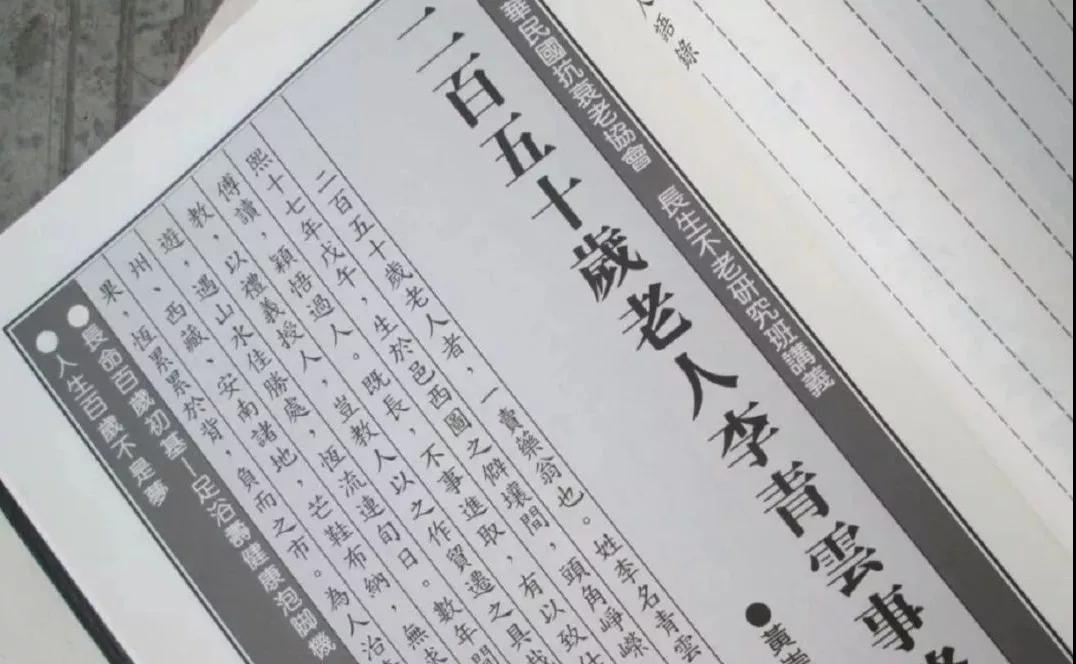 人語錄
華民國抗衰老協會 長生不老研究班講義
二百五十歲老人李青雲事
●黃
二百五十歲老人者，一賣藥翁也。姓李名青雲
熙十七年戊午，生於邑西圖之僻壤間，頭角崢嶸
傅讀，穎悟過人。既長，不事進取，有以致仕
教，以禮義授人，豈教人以之作貿遷之具
遊，遇山水佳勝處，恆流連旬日。數年間
州、西藏、安南諸地，芒鞋布納，無求
果，恆累累於背，負而之市。為人治
●長命百歲初基－足浴壽健康泡腳機
●人生百歲不是夢